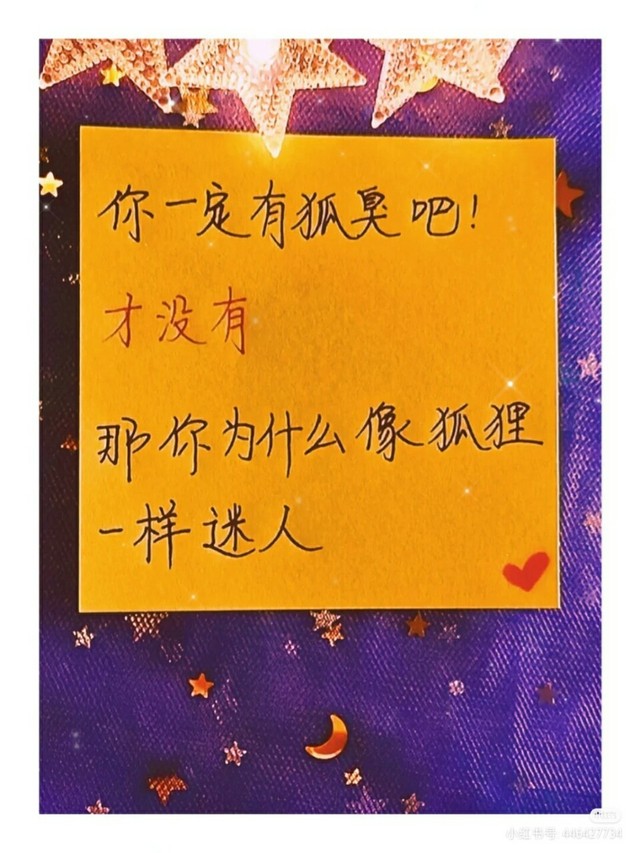 你一定有狐臭吧！
才没有
那你为什么像狐狸
一样迷人
小红书号: 448427734